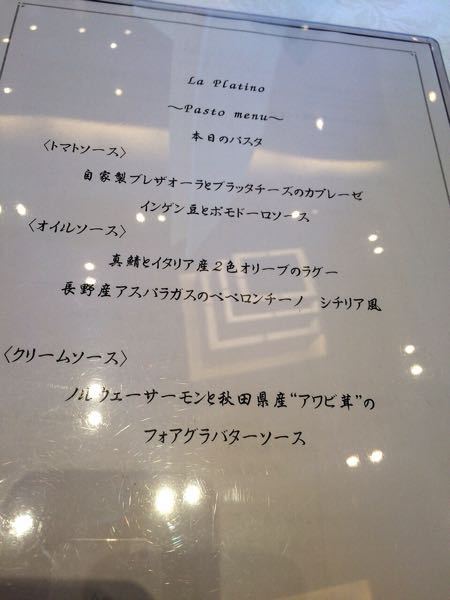 La Platino
～Pasto menu～
本日のパスタ
〈トマトソース〉
自家製ブレザオーラとブラッタチーズのカプレーゼ
インゲン豆とポモドーロソース
〈オイルソース〉
真鯖とイタリア産2色オリーブのラグー
長野産アスパラガスのペペロンチーノ　シチリア風
〈クリームソース〉
ノルウェーサーモンと秋田県産“アワビ茸”の
フォアグラバターソース